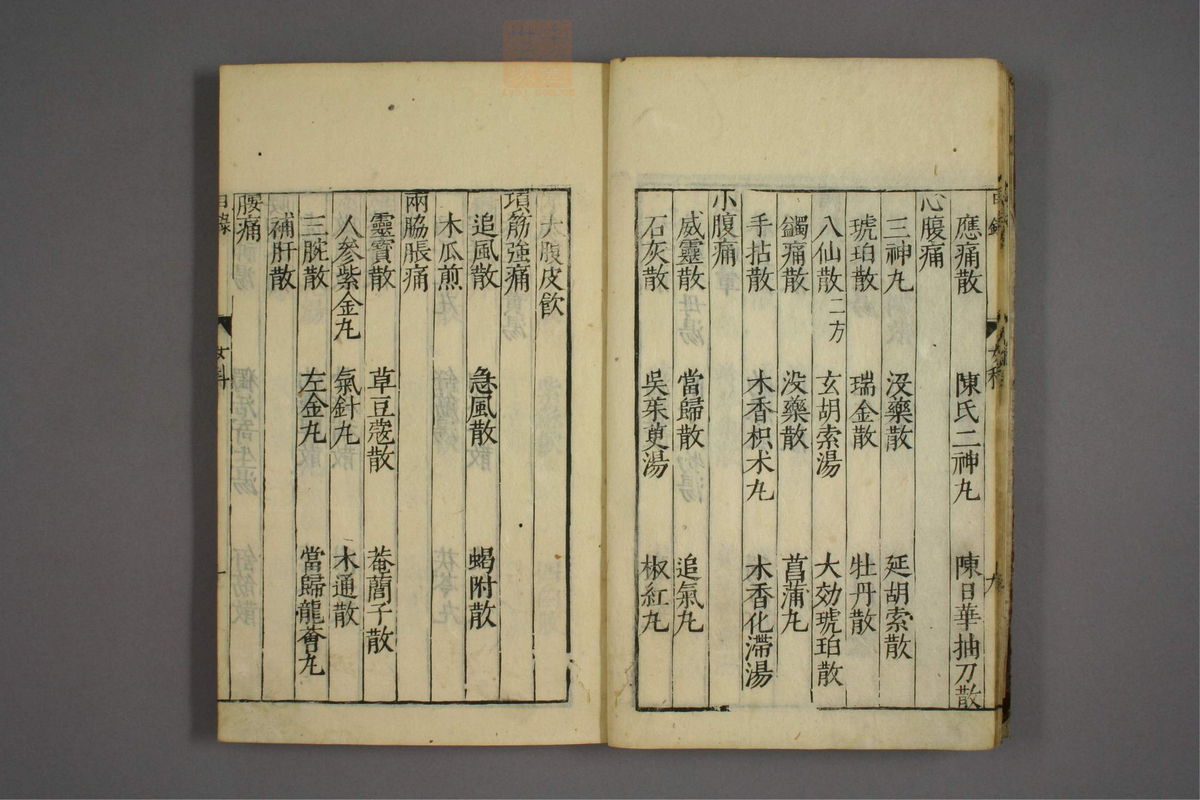 應痛散 陳氏二神丸 陳日華抽刀散
心腹痛
三神丸 沒藥散 延胡索散
琥珀散 瑞金散 牡丹散
八仙散二方 玄胡索湯 大効琥珀散
蠲痛散 没藥散 菖蒲丸
手拈散 木香枳术丸 木香化滯湯
小腹痛
威靈散 當歸散 追氣丸
石灰散 吳茱萸湯 椒紅丸
大腹皮飲
項筋強痛
追風散 急風散 蝎附散
木瓜煎
兩脇脹痛
靈寶散 草豆蔻散 菴䕡子散
人參紫金丸 氣針丸 木通散
三脘散 左金丸 當歸龍薈丸
補肝散
腰痛
目錄 女科